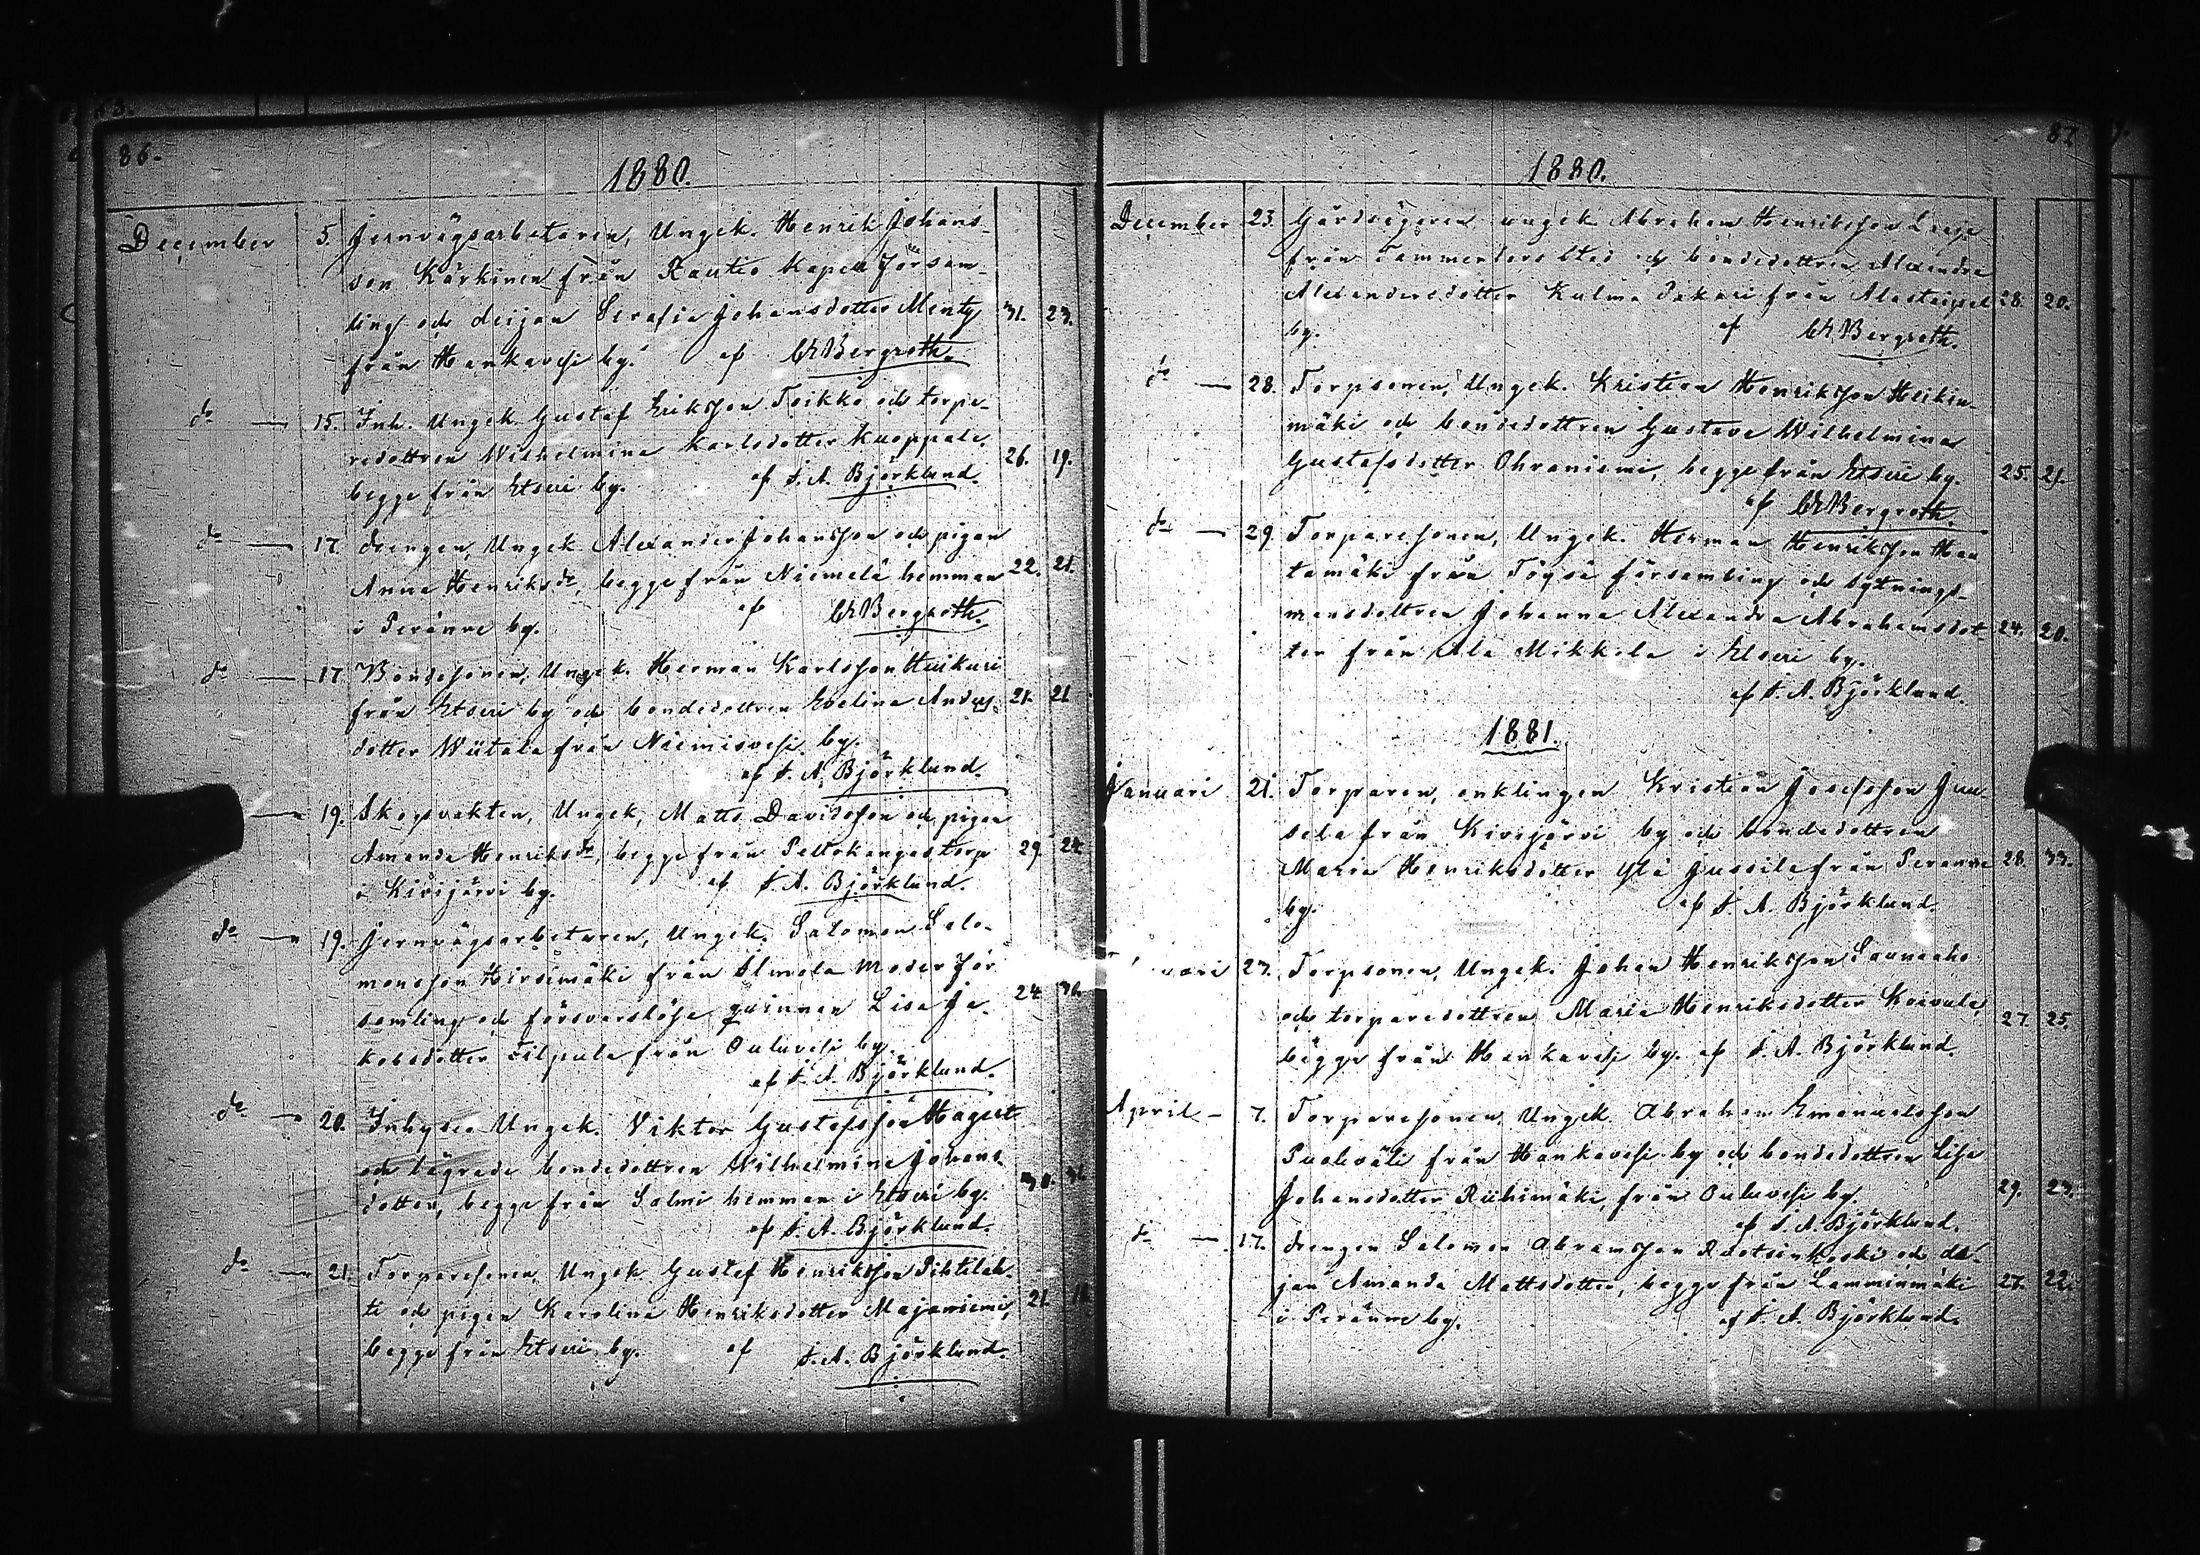 86.
1880.
December 5. Jernvägsarbetaren, Ungk. Henrik Johans-
son Kärkinen från Rautio Kapell försam-
ling och deijan Serafia Johansdotter Menty 31. 23.
från Hankavesi by. af Ch Bergroth.
do — 15. Inh. Ungk. Gustaf Eriksson Toikko och torpa-
redottren Wilhelmina Karlsdotter Kuoppala, 26. 19.
begge från Etseri by. af F. A. Björklund.
do — 17. drengen Ungk. Alexander Johansson och pigan
Anna Henriksdr, begge från Niemelä hemman 22. 21.
i Peränne by. af Ch Bergroth.
do — 17. Bondesonen, Ungk. Herman Karlsson
från Etseri by och bondedottren Evelina Anders- 21. 21
dotter Wiitala från Niemisvesi by.
af F. A. Björklund.
— 19. Skogsvakten, Ungk, Matts Davidsson och pigan
Amanda Henriksdr, begge från Peltokangas torp 29. 24
i Kivijärvi by. af F. A. Björklund.
do — 19. Jernvägsarbetaren, Ungk. Salomon Salo-
monsson Hirsimäki från Ilmola moder för-
samling och försvarslösa qvinnan Lisa Ja- 24
kobsdotter Filpula från Ouluvesi by
af F. A. Björklund.
do — 20. Inhyses Ungk. Viktor Gustafsson
och lägrade bondedottren Wilhelmina Johans-
dotter, begge från Salmi hemman i Etseri by. 30.
af F. A. Björklund.
do — 21. Torparesonen, Ungk. Gustaf Henriksson
och pigan Karolina Henriksdotter Majaniemi, 21.
begge från Etseri by. af F. A. Björklund.
87
1880.
December 23. Gårdsegaren ungk Abraham Henriksson
från Tammerfors stad och bondedottren Alexandra
Alexandersdotter Kulma från 28. 20.
by. af Ch Bergroth.
do — 28. Torpsonen, Ungk. Kristian Henriksson Heikin-
mäki och bondedottren Gustava Wilhelmina
Gustafsdotter Ohraniemi, begge från Etseri by. 25. 21.
af Ch Bergroth.
do — 29. Torparesonen, Ungk. Herman Henriksson Han
tamäki från Töysä församling och sytnings-
mansdottren Johanna Alexandra Abrahamsdot 24. 20.
ter från Ala Mikkila i Etseri by.
af F. A. Björklund.
1881.
Januari 21. Torparen, enklingen Kristian Josefsson Juu-
sela från Kivijärvi by och bondedottren
Maria Henriksdotter Yli Jussila från Peränne 28. 33.
by. af F. A. Björklund.
23. Torpsonen, Ungk. Johan Henriksson Saunaaho
och torparedottren Maria Henriksdotter Koivula, 27. 25.
begge från Hankavesi by. af F. A. Björklund.
April — 7. Torparesonen, Ungk. Abraham Emanuelsson
Puoliväli från Hankavesi by och bondedottren Lisa
Johansdotter Riihimäki, från Ouluvesi by. 29. 23.
af F. A. Björklund.
do — 17. drengen Salomon Abramsson Ruotsinkoski och de-
jan Amanda Mattsdotter, begge från Lamminmäki 27. 22.
i Peränne by. af F. A. Björklund.